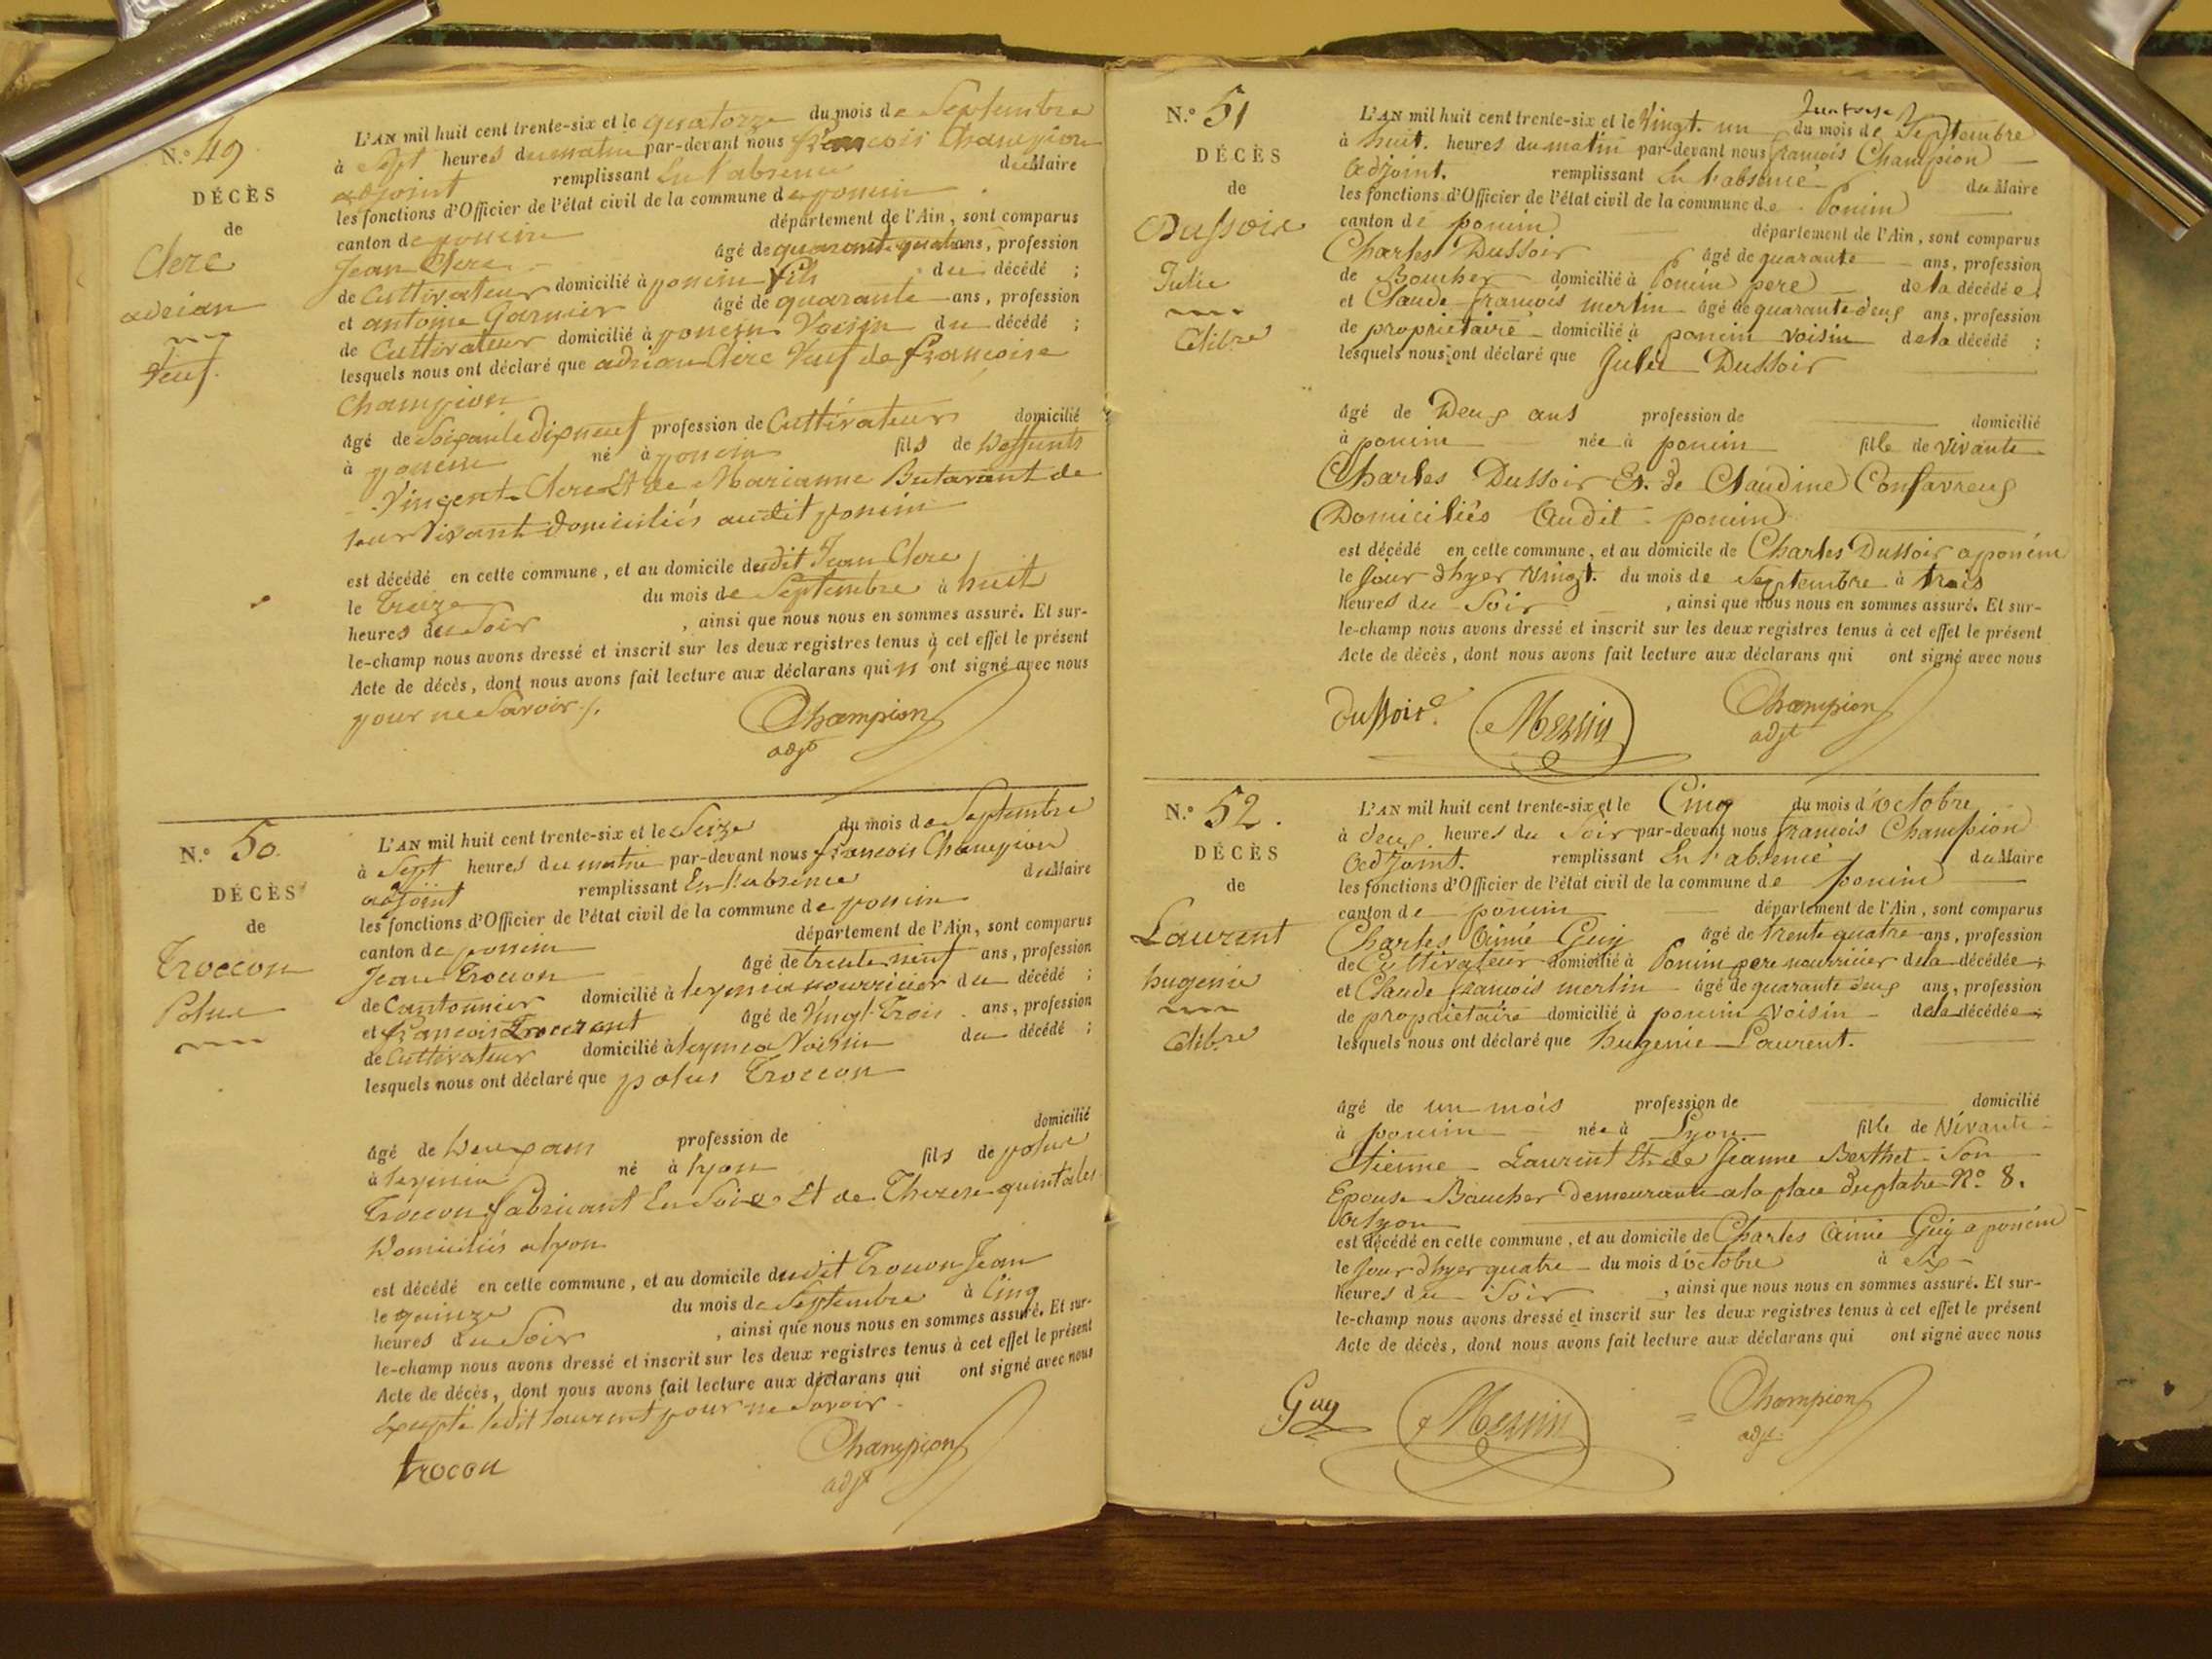 N.º 49
DÉCÈS
de
Clerc
adrian
Veuf.
L'AN mil huit cent trente-six et le quatorze du mois de Septembre
à Sept heures du matin par-devant nous françois Champion
adjoint remplissant En l'absence du Maire
les fonctions d'Officier de l'état civil de la commune de poncin
canton de poncin département de l'Ain, sont comparus
Jean Clerc âgé de quarante quatre ans, profession
de Cultivateur domicilié à poncin fils du décédé ;
et antoine Garnier âgé de quarante ans, profession
de Cultivateur domicilié à poncin Voisin du décédé ;
lesquels nous ont déclaré que adrian Clerc Veuf de françoise
Champion
âgé de Soixante dix neuf profession de Cultivateur domicilié
à poncin né à poncin fils de Deffunts
Vincent Clerc Et de Marianne Butavant de
leur Vivant domiciliés audit poncin
est décédé en cette commune, et au domicile dudit Jean Clerc
le Treize du mois de Septembre à huit
heures du Soir , ainsi que nous nous en sommes assuré. Et sur-
le-champ nous avons dressé et inscrit sur les deux registres tenus à cet effet le présent
Acte de décès, dont nous avons fait lecture aux déclarans qui n' ont signé avec nous
pour ne Savoir /.
Champion
adjt
N.º 50.
DÉCÈS
de
Troccon
Potus
L'AN mil huit cent trente-six et le Seize du mois de Septembre
à Sept heures du matin par-devant nous françois Champion
adjoint remplissant En l'absence du Maire
les fonctions d'Officier de l'état civil de la commune de poncin
canton de poncin département de l'Ain, sont comparus
Jean Troccon âgé de trente neuf ans, profession
de Cantonnier domicilié à leymia nourricier du décédé ;
et françois âgé de Vingt-Trois ans, profession
de Cultivateur domicilié à leymia Voisin du décédé ;
lesquels nous ont déclaré que potus Troccon
âgé de Deux ans profession de domicilié
à leymia né à lyon fils de potus
Troccon fabricant En Soie Et de Therese quintales
Domiciliés a lyon
est décédé en cette commune, et au domicile dudit Troccon Jean
le quinze du mois de Septembre à Cinq
heures du Soir , ainsi que nous nous en sommes assuré. Et sur-
le-champ nous avons dressé et inscrit sur les deux registres tenus à cet effet le présent
Acte de décès, dont nous avons fait lecture aux déclarans qui ont signé avec nous
Excepté ledit pour ne Savoir.
trocon
Champion
adjt
N.º 51
DÉCÈS
de
Dussoir
Julie
Célibre
L'AN mil huit cent trente-six et le Vingt. un du mois de Septembre
à huit. heures du matin par-devant nous françois Champion
Adjoint. remplissant En l'absence du Maire
les fonctions d'Officier de l'état civil de la commune de Poncin
canton de poncin département de l'Ain, sont comparus
Charles Dussoir âgé de quarante ans, profession
de Boucher domicilié à Poncin pere de la décédée ;
et Claude françois merlin âgé de quarante deux ans, profession
de propriétaire domicilié à poncin voisin de la décédé ;
lesquels nous ont déclaré que Julie Dussoir
âgé de Deux ans profession de domicilié
à poncin née à poncin fille de vivante
Charles Dussoir Et de Claudine Confavreux
Domiciliés Audit poncin
est décédé en cette commune, et au domicile de Charles Dussoir a poncin
le Jour d'hyer Vingt. du mois de Septembre à trois
heures du Soir , ainsi que nous nous en sommes assuré. Et sur-
le-champ nous avons dressé et inscrit sur les deux registres tenus à cet effet le présent
Acte de décès, dont nous avons fait lecture aux déclarans qui ont signé avec nous
dussoir
Merlin
Champion
adjt
N.º 52.
DÉCÈS
de
Laurent
hugenie
Célibre
L'AN mil huit cent trente-six et le Cinq du mois d'octobre
à deux heures du Soir par-devant nous françois Champion
Adjoint. remplissant En l'absence du Maire
les fonctions d'Officier de l'état civil de la commune de poncin
canton de poncin département de l'Ain, sont comparus
Charles Aimé Guy âgé de trente quatre ans, profession
de Cultivateur domicilié à Poncin pere nourricier de la décédée ;
et Claude françois merlin âgé de quarante deux ans, profession
de propriétaire domicilié à poncin voisin de la décédée ;
lesquels nous ont déclaré que hugenie Laurent.
âgé de un mois profession de domicilié
à poncin née à Lyon fille de Vivante
Etienne Laurent Et de Jeanne Berthet Son
Epouse Boucher demeurante a la place du platre Nº. 8.
A lyon
est décédé en cette commune, et au domicile de Charles Aimé Guy a poncin
le Jour d'hyer quatre du mois d'octobre à Six
heures du Soir , ainsi que nous nous en sommes assuré. Et sur-
le-champ nous avons dressé et inscrit sur les deux registres tenus à cet effet le présent
Acte de décès, dont nous avons fait lecture aux déclarans qui ont signé avec nous
Guy
Merlin
Champion
adjt.